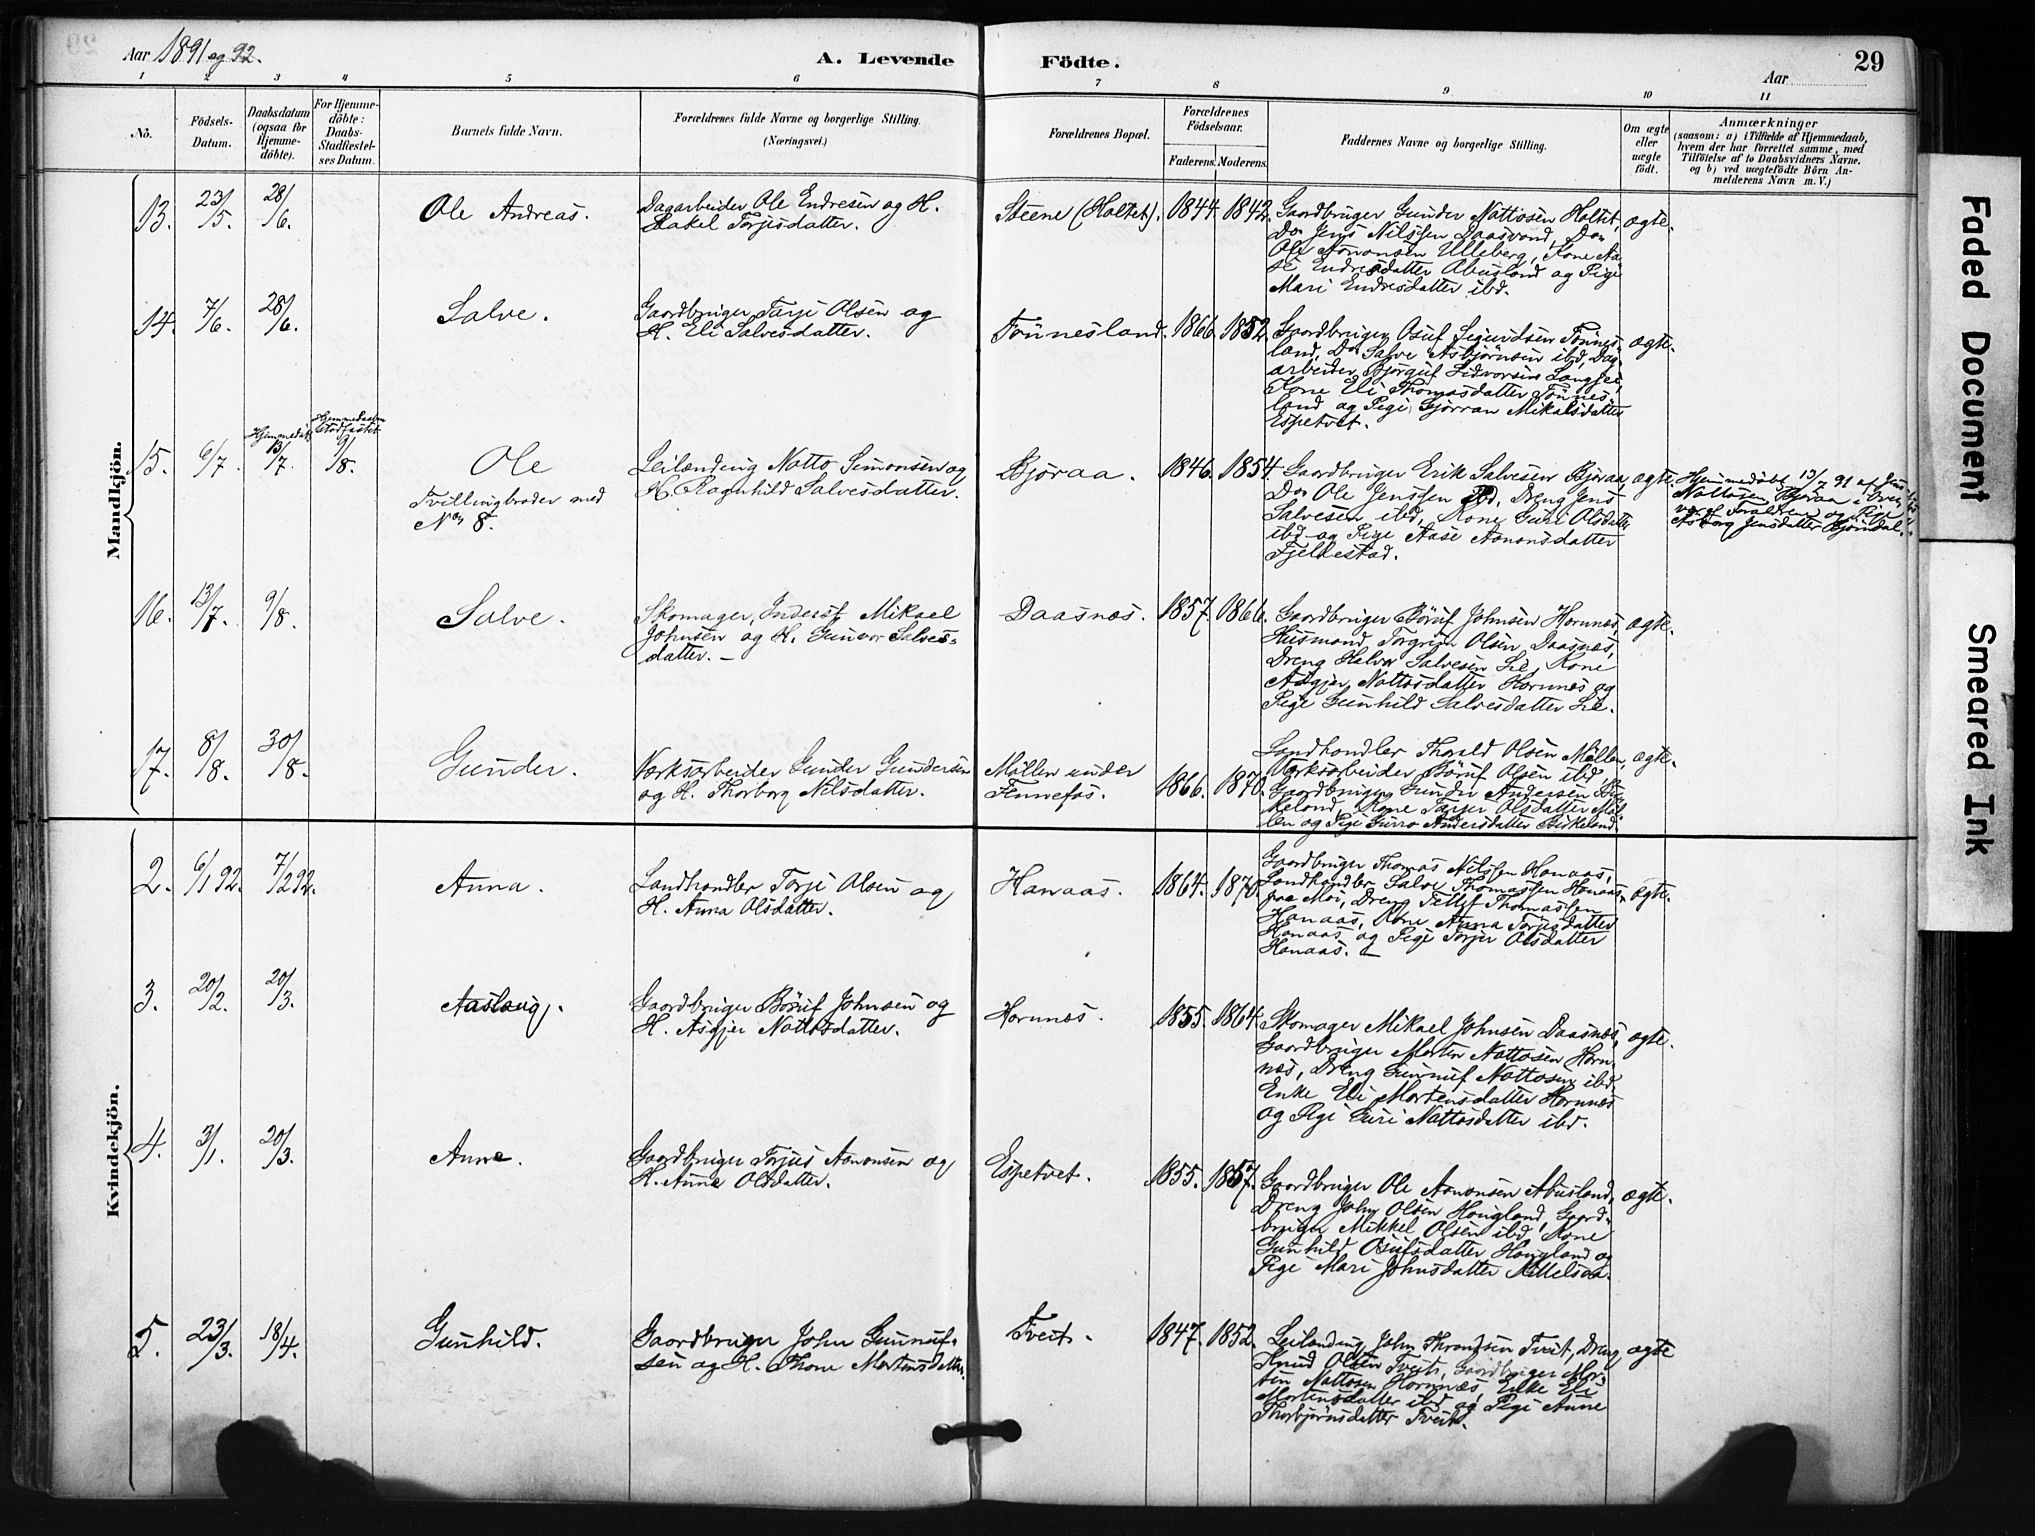 Aar 1891 og 92.
A. Levende Födte.
Aar
29
1 2 3 4 5 6 7 8 9 10 11
No.
Födsels-Datum.
Daabsdatum (ogsaa for Hjemme-döbte).
For Hjemme-döbte: Daabs-Stadfæstel-ses Datum.
Barnets fulde Navn.
Forældrenes fulde Navne og borgerlige Stilling.
(Næringsvei.)
Forældrenes Bopæl.
Forældrenes Födselsaar.
Faderens. Moderens.
Faddernes Navne og borgerlige Stilling.
Om ægte eller uægte födt.
Anmærkninger
(saasom: a) i Tilfælde af Hjemmedaab,
hvem der har forrettet samme, med
Tilföielse af to Daabsvidners Navne,
og b) ved uægtefödte Börn An-
melderens Navn m. V.)
Mandkjön.
13. 23/5. 28/6. Ole Andreas.
Dagarbeider Ole Endresen og H.
Rakel Torjusdatter.
Steene (Holtet). 1844. 1842.
Gaardbruger Gunder Nottosen Holtet,
Do Jens Nilssen Daasvand, Do
Ole Aanonsen Ulleberg, Kone Aa-
se Endresdatter Abusland og Pige
Mari Endresdatter ibd.
ægte.
14. 7/6. 28/6. Salve.
Gaardbruger Tarje Olsen og
H. Eli Salvesdatter.
Tönnesland. 1866. 1852.
Gaardbruger Osuf Sigurdsen Tönnes-
land, Do Salve Asbjörnsen ibd, Dag
arbeider Björguf Sidvorsen
Kone Eli Thomasdatter Tönnes-
land og Pige Gjörran Mikalsdatter
Espetvet.
ægte.
15. 6/7. Hjemmedöbt 13/7. Hjemmedaaben Stadfæstet 9/8.
Ole
Tvillingbroder med
No 8.
Leilænding Notto Simonsen og
H. Ragnhild Salvesdatter.
Björaa. 1846. 1854.
Gaardbruger Erik Salvesen Björaa,
Do Ole Jenssen ibd, Dreng Jens
Salvesen ibd, Kone Guri Olsdatter
ibd og Pige Aase Aanonsdatter
Fjellestad.
ægte.
Hjemmedöbt 13/7 91 af Jens
Nottosen Björaa i Over-
være Foraldrene og Pige
Asborg Jensdatter Bjöndal.
16. 13/7. 9/8. Salve.
Skomager, Inderst Mikael
Johnsen og H. Gunvor Salves-
datter. –
Daasnæs. 1857. 1866.
Gaardbruger Böruf Johnsen Hornnes,
Husmand Torgrim Olsen Daasnæs,
Dreng Halvor Salvesen Lie, Kone
Asgjer Nottosdatter Hornnes og
Pige Gunhild Salvesdatter Lie.
ægte.
17. 8/8. 30/8. Gunder.
Værksarbeider Gunder Gundersen
og H. Thorborg Nilsdatter.
Möllen under
Fennefos. 1866. 1870.
Landhandler Thorald Olsen Möllen,
Værksarbeider Böruf Olsen ibd,
Gaardbruger Gunder Andersen Bir-
keland, Kone Torjer Olsdatter Möl-
len og Pige Gurro Andersdatter Birkeland.
ægte.
Kvindekjön.
2. 6/1 92. 7/2 92. Anna.
Landhandler Torje Olsen og
H. Anna Olsdatter.
Hanaas. 1864. 1870.
Gaardbruger Thomas Nilssen Hanaas,
Landhandler Salve Thomassen Hanaas
paa Moi, Dreng Tellef Thomassen
Hanaas, Kone Anna Torjusdatter
Hanaas og Pige Torjer Olsdatter
Hanaas. –
ægte.
3. 20/2. 20/3. Aaslaug.
Gaardbruger Böruf Johnsen og
H. Asgjer Nottosdatter.
Hornnes. 1855. 1864.
Skomager Mikael Johnsen Daasnæs,
Gaardbruger Morten Nottosen Horn-
nes, Dreng Gunnuf Nottosen ibd,
Enke Eli Mortensdatter Hornnes
og Pige Guri Nottosdatter ibd.
ægte.
4. 3/1. 20/3. Anne.
Gaardbruger Torjus Aanonsen og
H. Anne Olsdatter.
Espetvet. 1855. 1857.
Gaardbruger Ole Aanonsen Abusland,
Dreng John Olsen Haugland, Gaard-
bruger Mikkel Olsen ibd, Kone
Gunhild Osufsdatter Haugland og
Pige Mari Johnsdatter Kittelsaa.
ægte.
5. 23/3. 18/4. Gunhild.
Gaardbruger John Gunnuf-
sen og H. Thone Mortensdatter.
Tveit. 1847. 1852.
Leilænding John Throndsen Tveit, Dreng
Knud Olsen Tveit, Gaardbruger Mor-
ten Nottosen Hornnes, Enke Eli
Mortensdatter ibd og Pige Anne
Thorbjörnsdatter Tveit.
ægte
Faded Document
Smeared Ink